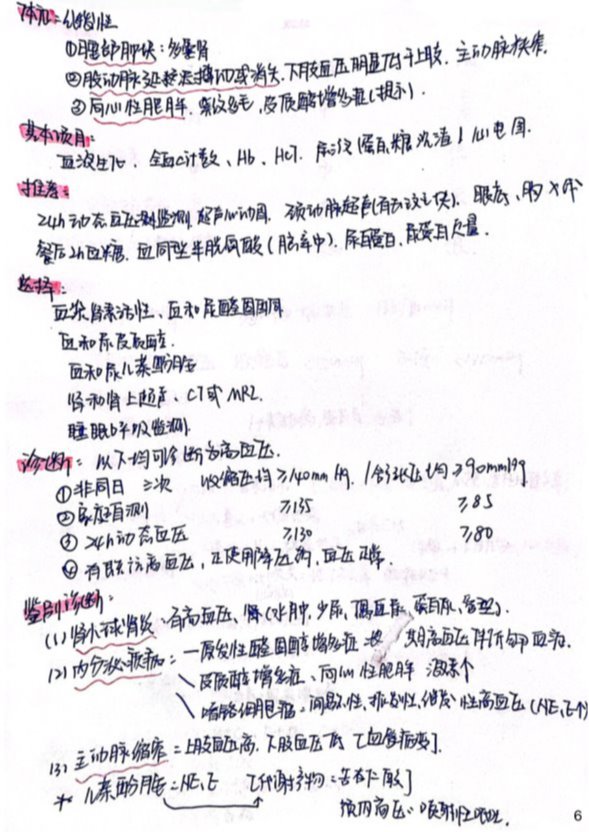 体征:继发性
①腰部肿块:多囊肾
②股动脉延搏迟搏动或消失,下肢血压明显低于上肢,主动脉狭窄.
③向心性肥胖,紫纹多毛,皮质醇增多症(提示).
基本项目:
血液生化、全血C计数、Hb、HCT.尿液蛋白、糖、沉渣 心电图.
推荐:
24h动态血压测监测,超声心动图、颈动脉超声 眼底、胸X片
餐后2h血糖、血同型半胱氨酸(脑卒中)、尿白蛋白,尿蛋白定量.
选择:
血浆肾素活性、血和尿醛固酮
血和尿皮质醇.
血和尿儿茶酚胺
肾和肾上超声、CT或MRI.
睡眠呼吸监测.
诊断:以下均可诊断为高血压.
①非同日 三次 收缩压均≥140mmHg /舒张压均≥90mmHg
②家庭自测 ≥135 ≥85
③24h动态血压 ≥130 ≥80
④有既往高血压,正使用降压药,血压正常.
鉴别诊断:
(1)肾小球肾炎:有高血压、肾(水肿,少尿,血尿,蛋白尿,管型).
(2)内分泌疾病:—原发性醛固酮增多症 长期高血压伴低钾血症.
皮质醇增多症、向心性肥胖
嗜铬细胞瘤、间歇性,阵发性,继发性高血压(NE,E↑)
(3)主动脉缩窄=上肢血压高,下肢血压低【血管病变】
* 儿茶酚胺=NE,E 【代谢产物:苦杏仁酸】
顽固高血压:呋塞
6